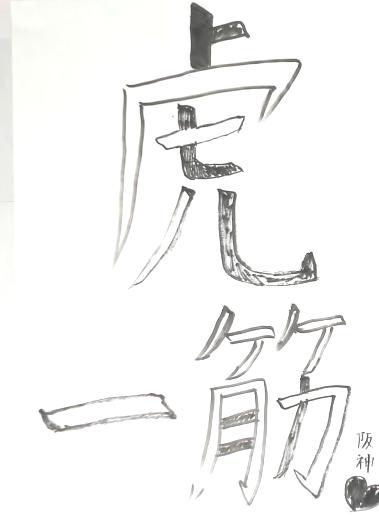 虎
一筋
阪神